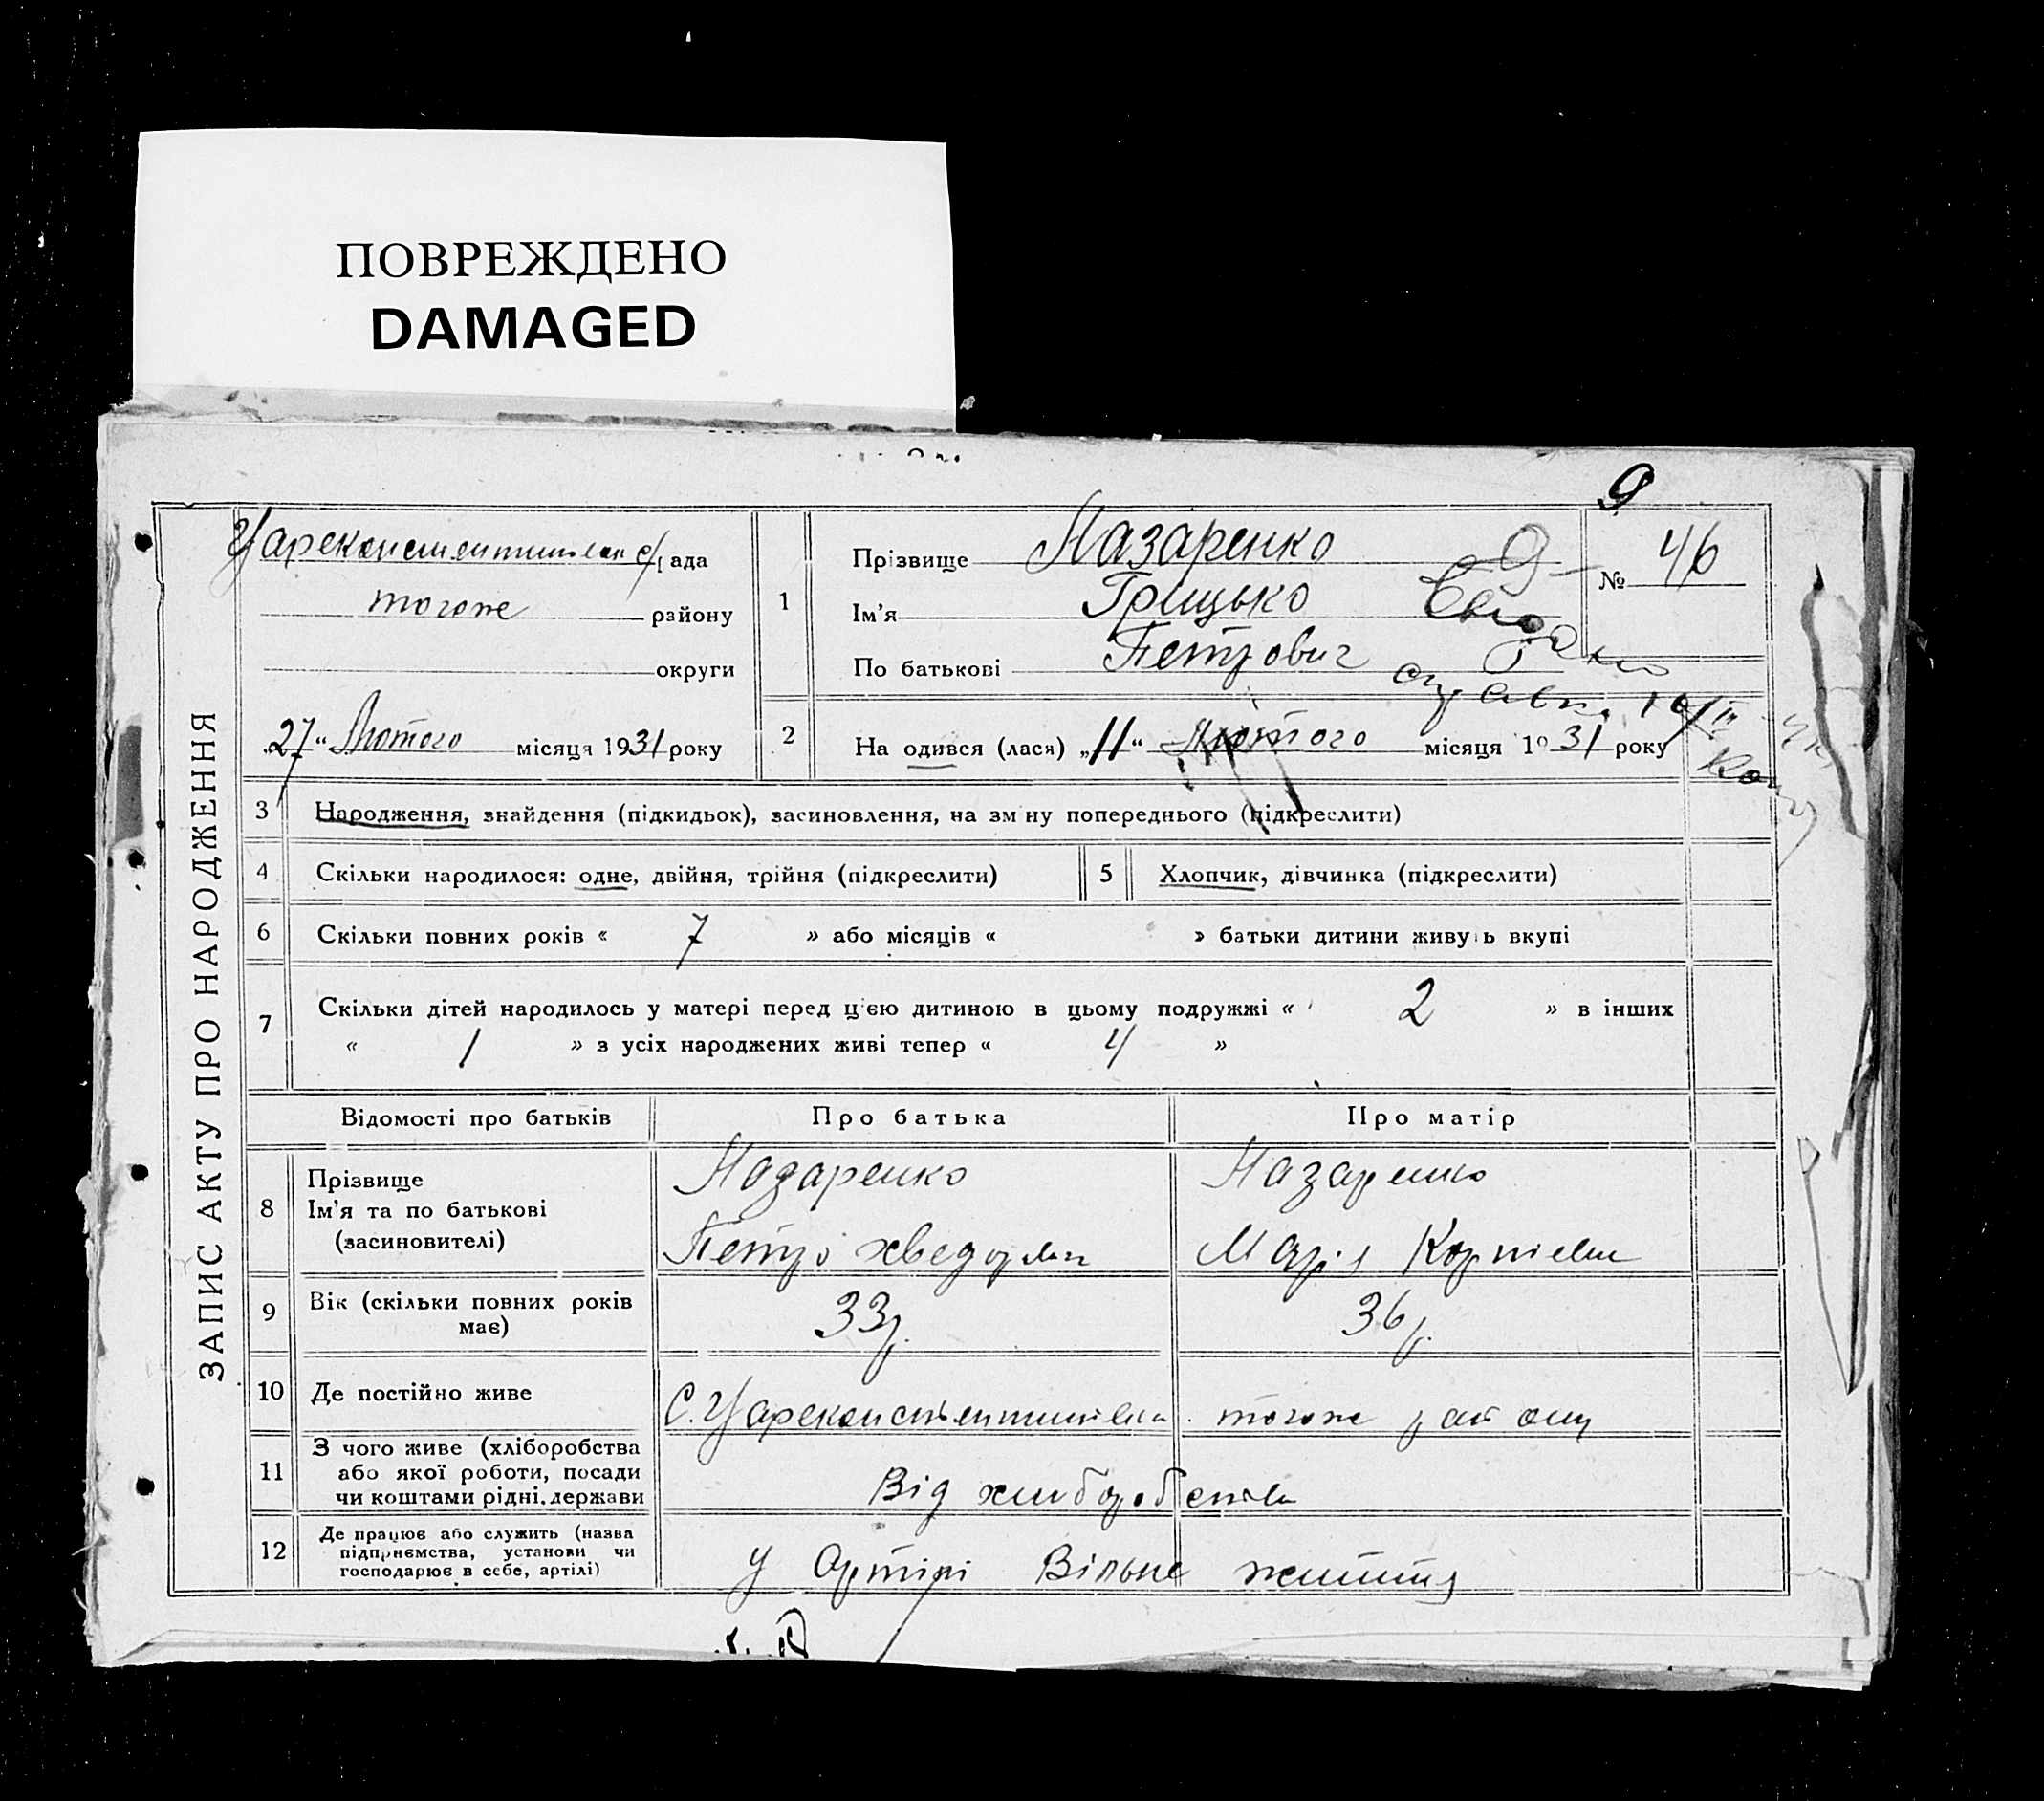 ПОВРЕЖДЕНО
DAMAGED
9
ЗАПИС АКТУ ПРО НАРОДЖЕННЯ
Царекон с/рада
тогоже району
округи
„27“ Лютого місяця 1931 року
1
Прізвище Назаренко
Ім'я Грицько
По батькові Петрович
№ 46
2
На одився (лася) „11“ Лютого місяця 1931 року
3 Народження, знайдення (підкидьок), засиновлення, на зм ну попереднього (підкреслити)
4 Скільки народилося: одне, двійня, трійня (підкреслити)
5 Хлопчик, дівчинка (підкреслити)
6 Скільки повних років « 7 » або місяців « » батьки дитини живу ь вкупі
7 Скільки дітей народилось у матері перед ц'єю дитиною в цьому подружжі « 2 » в інших
« 1 » з усіх народжених живі тепер « 4 »
Відомості про батьків Про батька Про матір
8 Прізвище
Ім'я та по батькові
(засиновителі)
Назаренко
Петро хведорович
Назаренко
Марія Корніевна
9 Вік (скільки повних років
має)
33р. 36р.
10 Де постійно живе С. Цареконстянтинівка тогоже району
11 З чого живе (хліборобства
або якої роботи, посади
чи коштами рідні, держави
Від хліборобства
12 Де працює або служить (назва
підприємства, установи чи
господарює в себе, артілі)
у Артілі Вільне життя